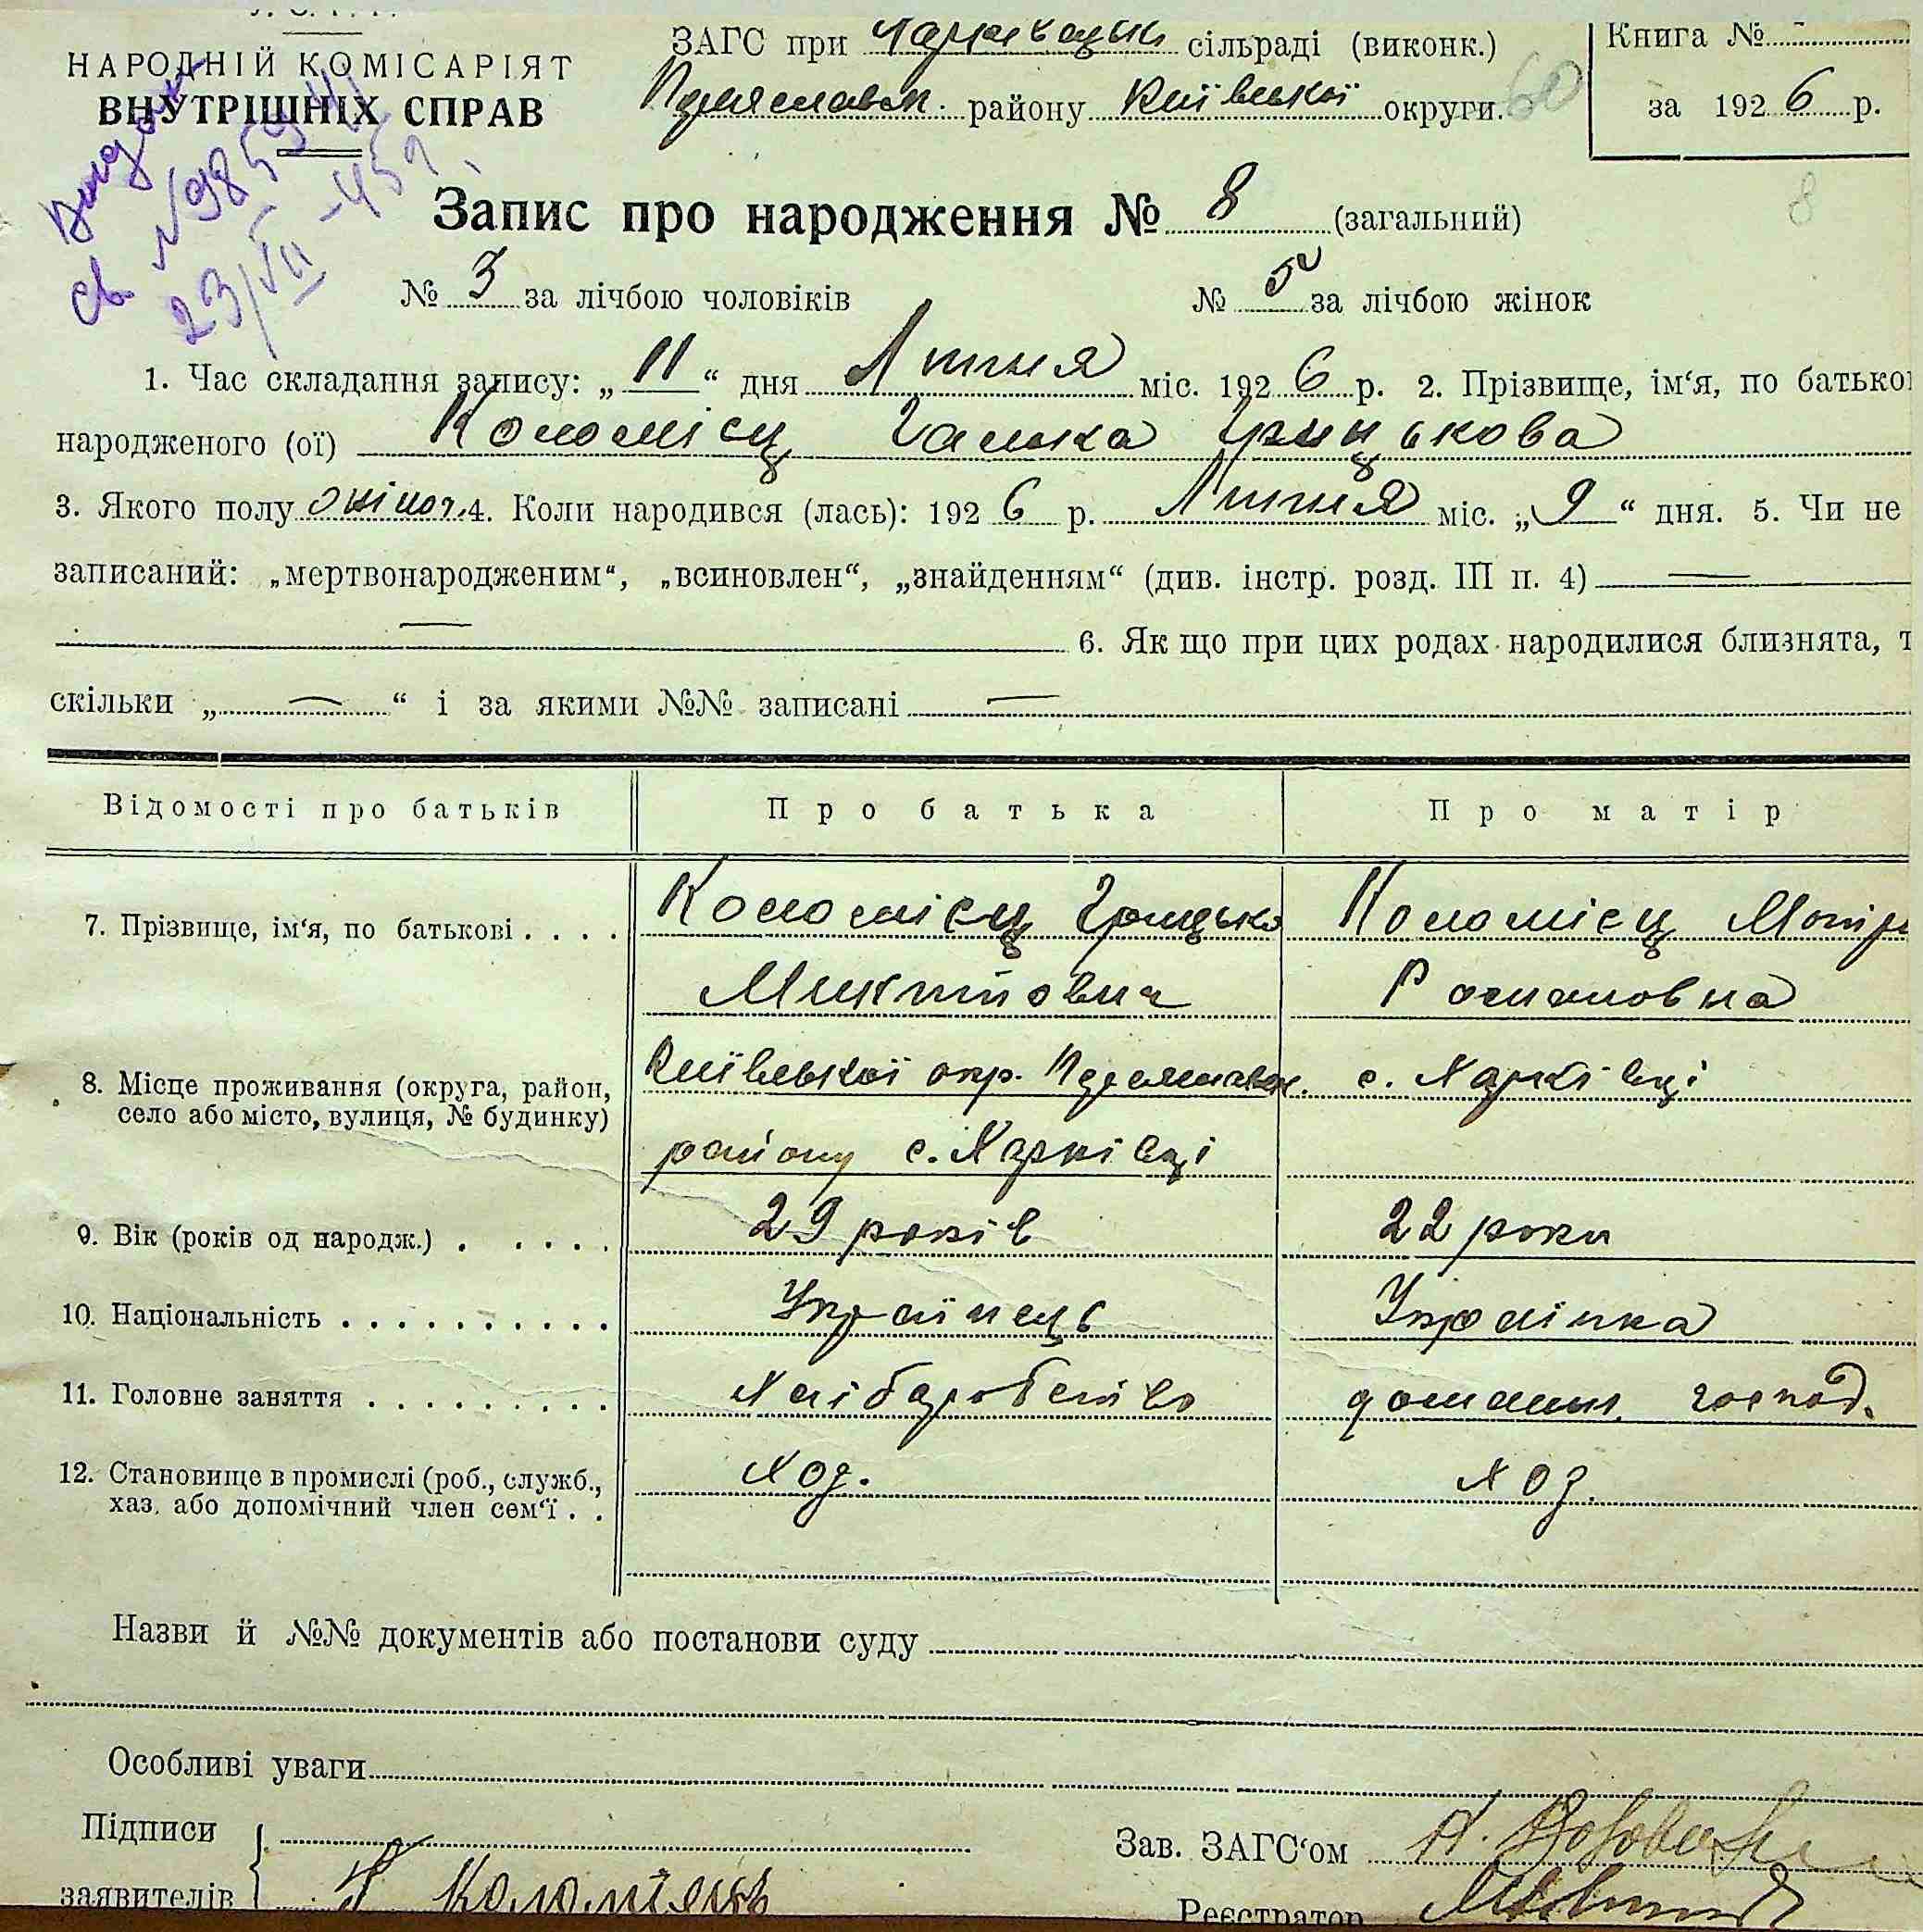 НАРОДНІЙ КОМІСАРІЯТ
ВНУТРІШНІХ СПРАВ
ЗАГС при Харківецьк сільраді (виконк.)
Переяславськ. району Київської округи. 60
Книга №
за 1926 р.
св. №
23/VII
Запис про народження № 8 (загальний)
8
№ 3 за лічбою чоловіків № 5 за лічбою жінок
1. Час складання запису: „11“ дня Липня міс. 1926 р. 2. Прізвище, ім‘я, по батько
народженого (ої) Коломієц Галька Грицькова
3. Якого полу жіноч. 4. Коли народився (лась): 1926 р. Липня міс. „9“ дня. 5. Чи не
записаний: „мертвонародженим“, „всиновлен“, „знайденням“ (див. інстр. розд. III п. 4) —
— 6. Як що при цих родах народилися близнята, т
скільки „—“ і за якими №№ записані —
Відомості про батьків Про батька Про матір
7. Прізвище, ім‘я, по батькові . . . . Коломієц Грицько Коломієц Мотр
Микитович Романовна
8. Місце проживання (округа, район, Київської окр. Переяславськ. с. Харківці
село або місто, вулиця, № будинку)
району с. Харківці
9. Вік (років од народж.) . . . . . 29 років 22 роки
10. Національність . . . . . . . . . . Українець Українка
11. Головне заняття . . . . . . . . . Хлібаробство домашн. господ.
12. Становище в промислі (роб., служб., Хоз. Хоз.
хаз. або допомічний член сем‘ї . .
Назви й №№ документів або постанови суду
Особливі уваги
Підписи
заявителів Г Коломієць
Зав. ЗАГС‘ом
Реєстратор